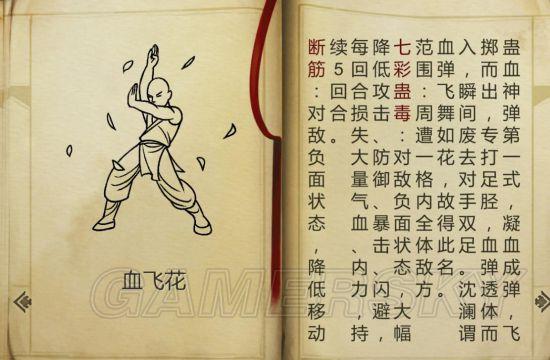 血飞花
蛊血神弹第一式，凝血成弹，飞
掷而出，专打足胫，血弹透体而
入，瞬间废去对手双足。沈澜谓
血弹飞舞如花，故得此名。
范围：周遭一格内全体敌方。
七彩蛊毒：对敌负面状态，大幅
降低攻击、防御、暴击、闪避，
每回合损失大量气血、内力，持
续5回合。
断筋：对敌负面状态，降低移动
GAMERSKY